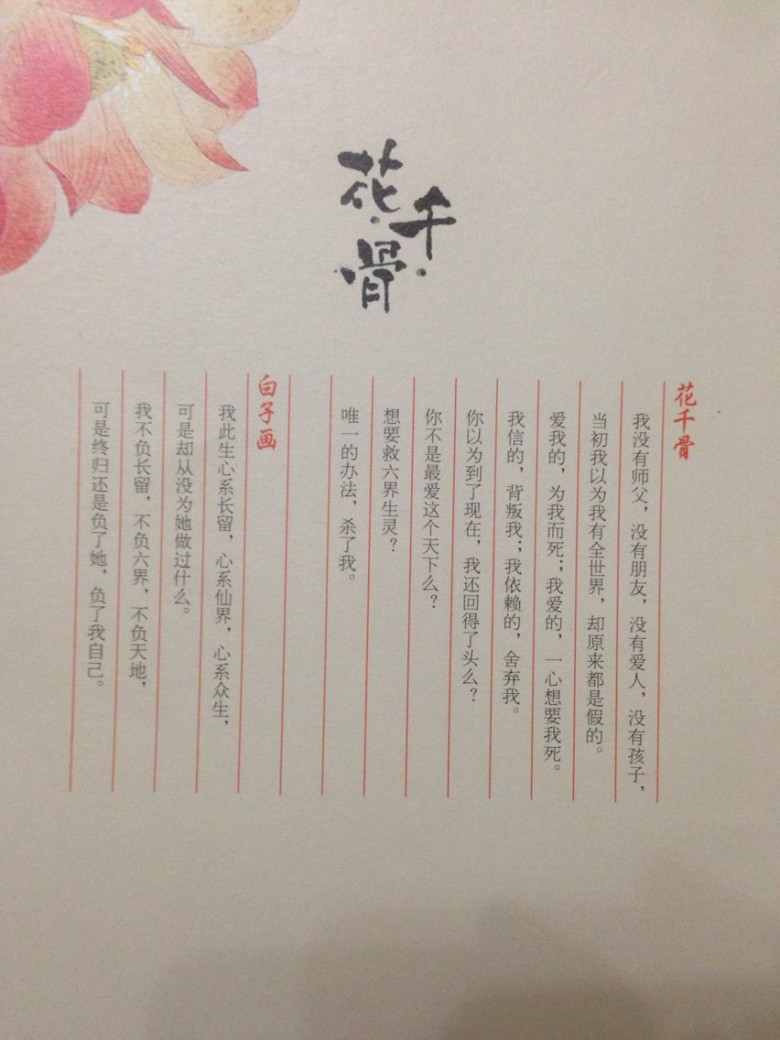 花千骨
花千骨
我没有师父，没有朋友，没有爱人，没有孩子，
当初我以为我有全世界，却原来都是假的。
爱我的，为我而死；我爱的，一心想要我死。
我信的，背叛我；我依赖的，舍弃我。
你以为到了现在，我还回得了头么？
你不是最爱这个天下么？
想要救六界生灵？
唯一的办法，杀了我。
白子画
我此生心系长留，心系仙界，心系众生，
可是却从没为她做过什么。
我不负长留，不负六界，不负天地，
可是终归还是负了她，负了我自己。